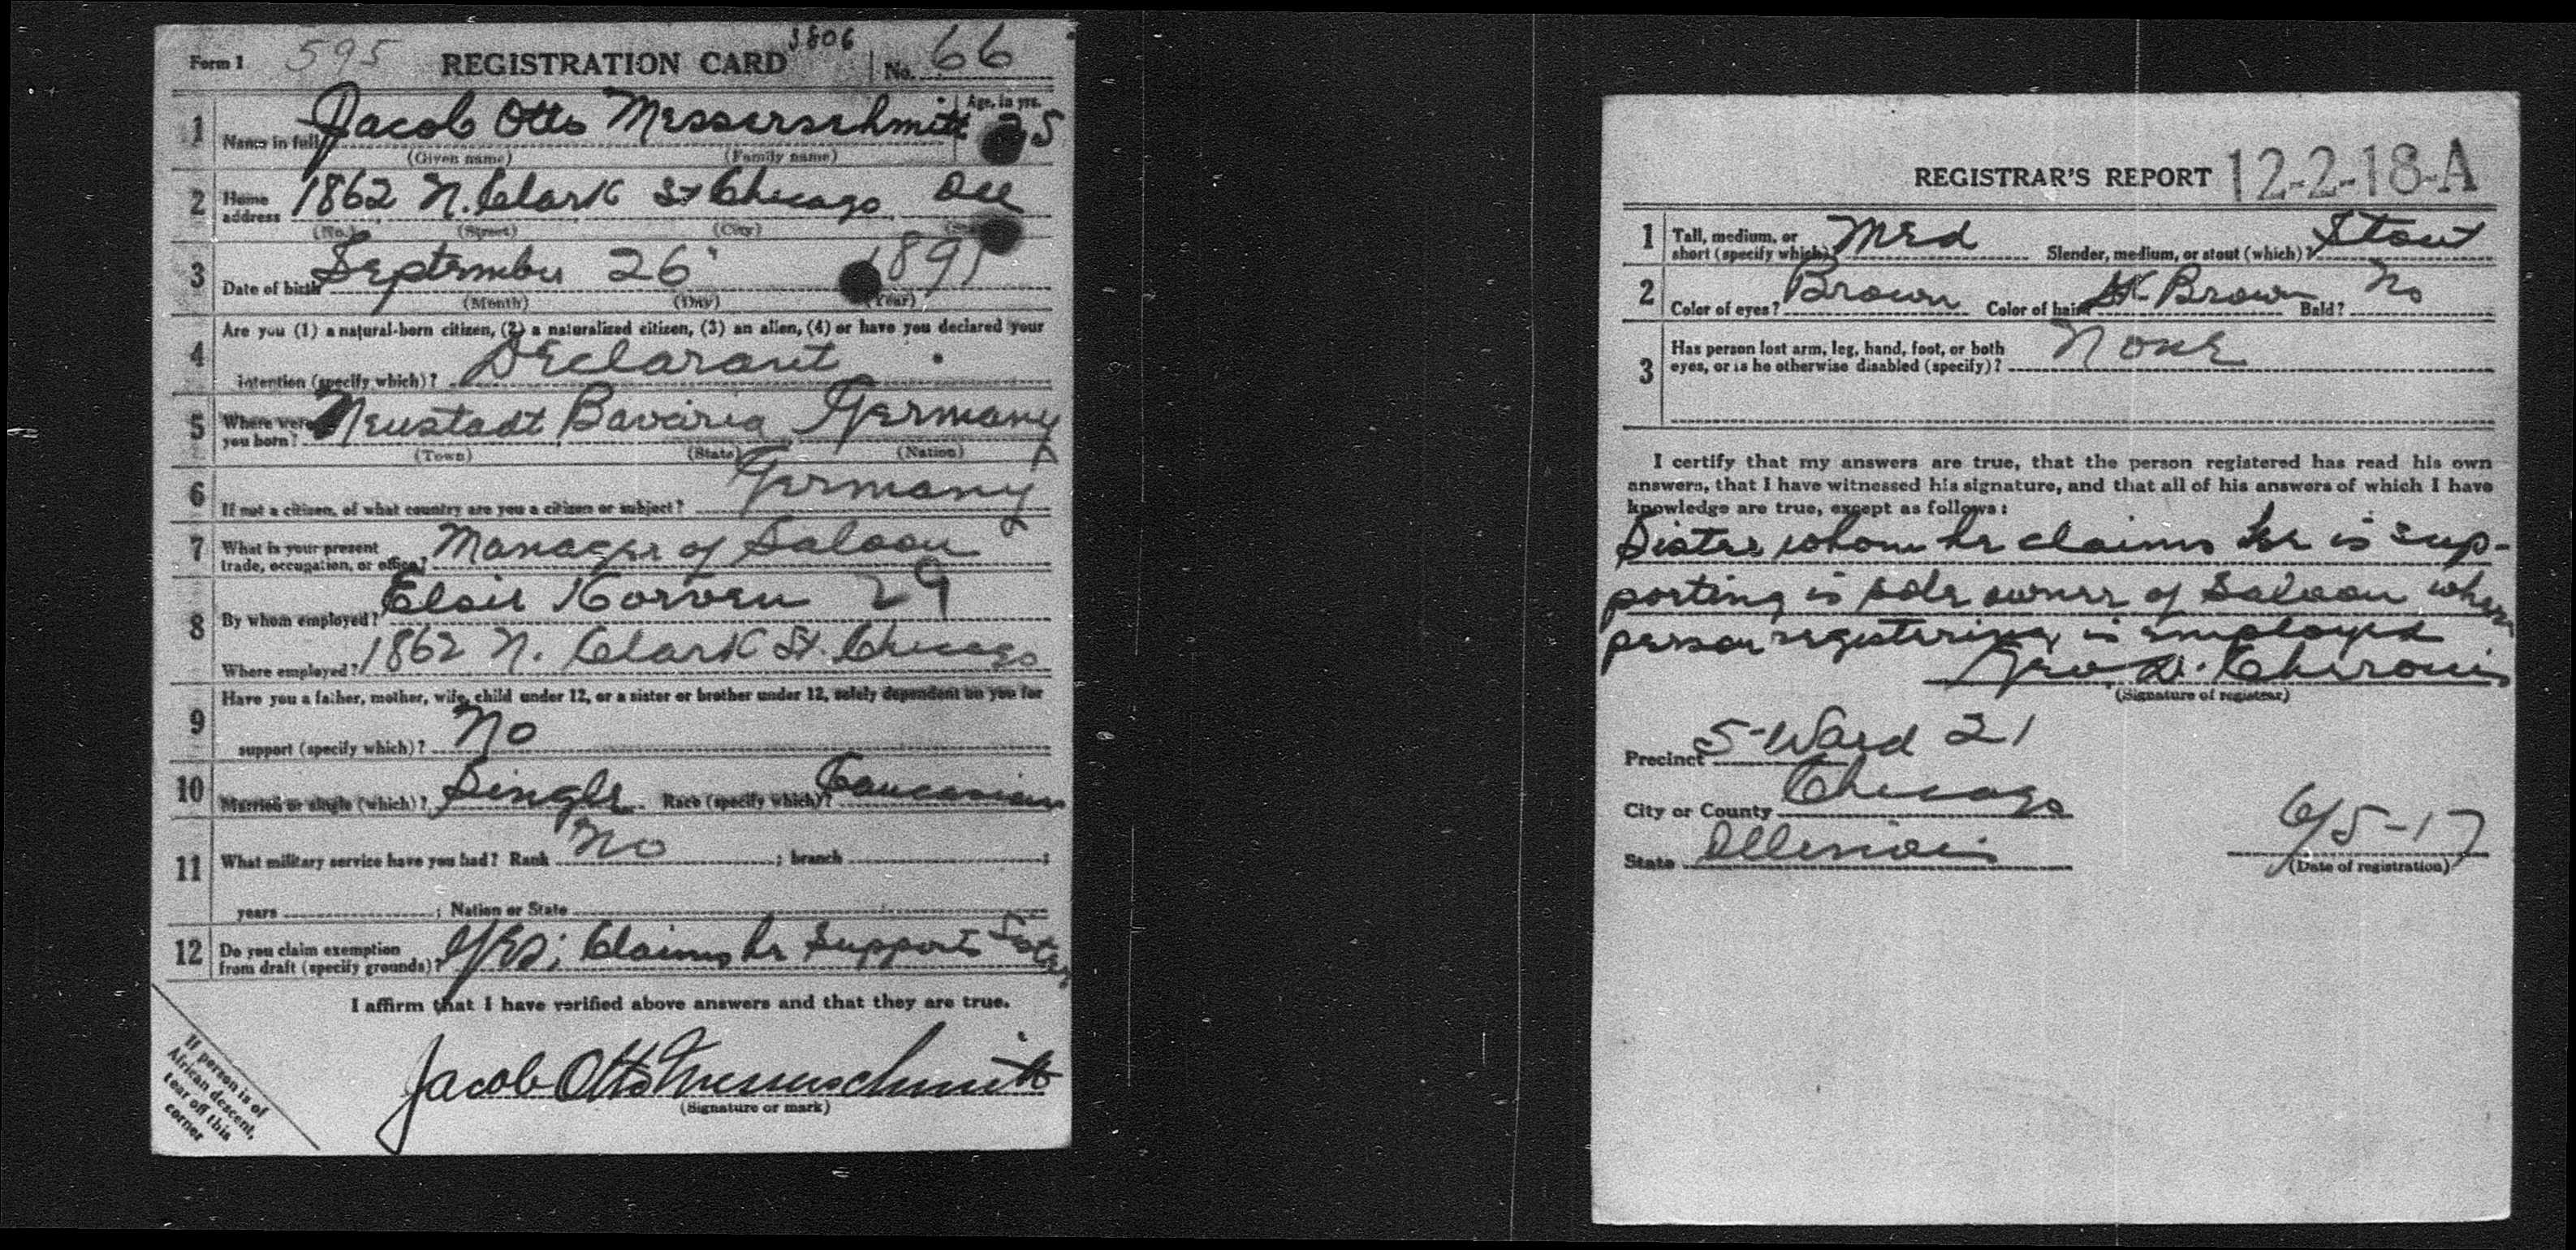 Form 1 595 REGISTRATION CARD 3806 No. 66
1 Name in full Jacob Otto Messerschmitt Age, in yrs. 25
(Given name) (Family name)
2 Home address 1862 N. Clark St Chicago Ill
(No.) (Street) (City)
3 Date of birth September 26 1891
(Month) (Day) (Year)
Are you (1) a natural-born citizen, (2) a naturalized citizen, (3) an alien, (4) or have you declared your
4 intention (specify which)? Declarant
5 Where were you born? Neustadt Bavaria Germany
(Town) (State) (Nation)
6 If not a citizen, of what country are you a citizen or subject? Germany
7 What is your present trade, occupation, or office? Manager of Saloon
8 By whom employed? Elsie Korven 29
Where employed? 1862 N. Clark St. Chicago
Have you a father, mother, wife, child under 12, or a sister or brother under 12, solely dependent on you for
9 support (specify which)? No
10 Married or single (which)? Single Race (specify which)? Caucasian
11 What military service have you had? Rank No ; branch ;
years ; Nation or State
12 Do you claim exemption from draft (specify grounds)? Yes; Claims he Supports Sister
I affirm that I have verified above answers and that they are true.
Jacob Otto Messerschmitt
(Signature or mark)
If person is of
African descent,
tear off this
corner
REGISTRAR'S REPORT 12-2-18-A
1 Tall, medium, or short (specify which)? Med Slender, medium, or stout (which)? Stout
2 Color of eyes? Brown Color of hair? Brown Bald? No
3 Has person lost arm, leg, hand, foot, or both
eyes, or is he otherwise disabled (specify)? None
I certify that my answers are true, that the person registered has read his own
answers, that I have witnessed his signature, and that all of his answers of which I have
knowledge are true, except as follows:
Sister whom he claims he is sup-
porting is sole owner of Saloon where
person registering is employed
Geo D.
(Signature of registrar)
Precinct 5-Ward 21
City or County Chicago
State Illinois 6/5-17
(Date of registration)